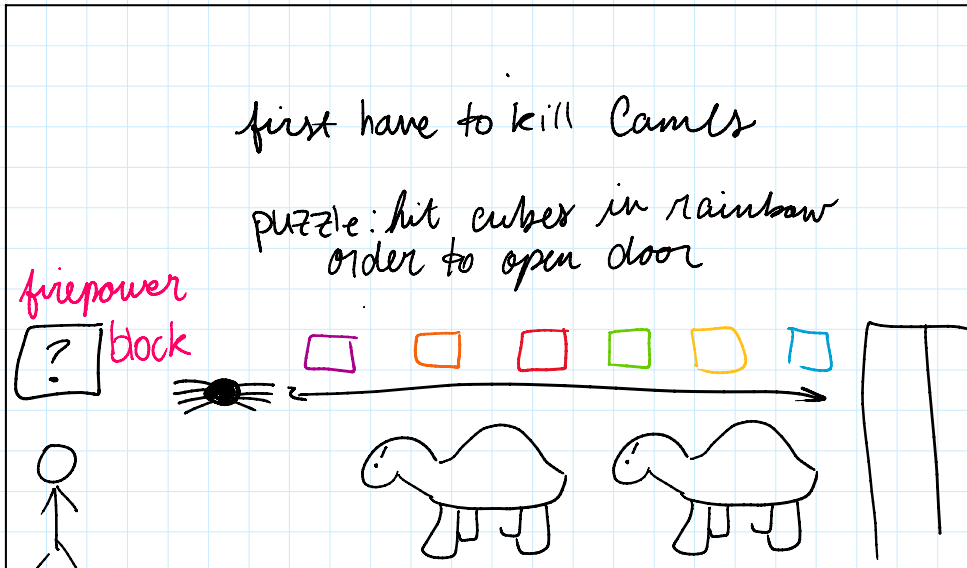 first have to kill Camls
puzzle: hit cubes in rainbow
order to open door
firepower
block
?